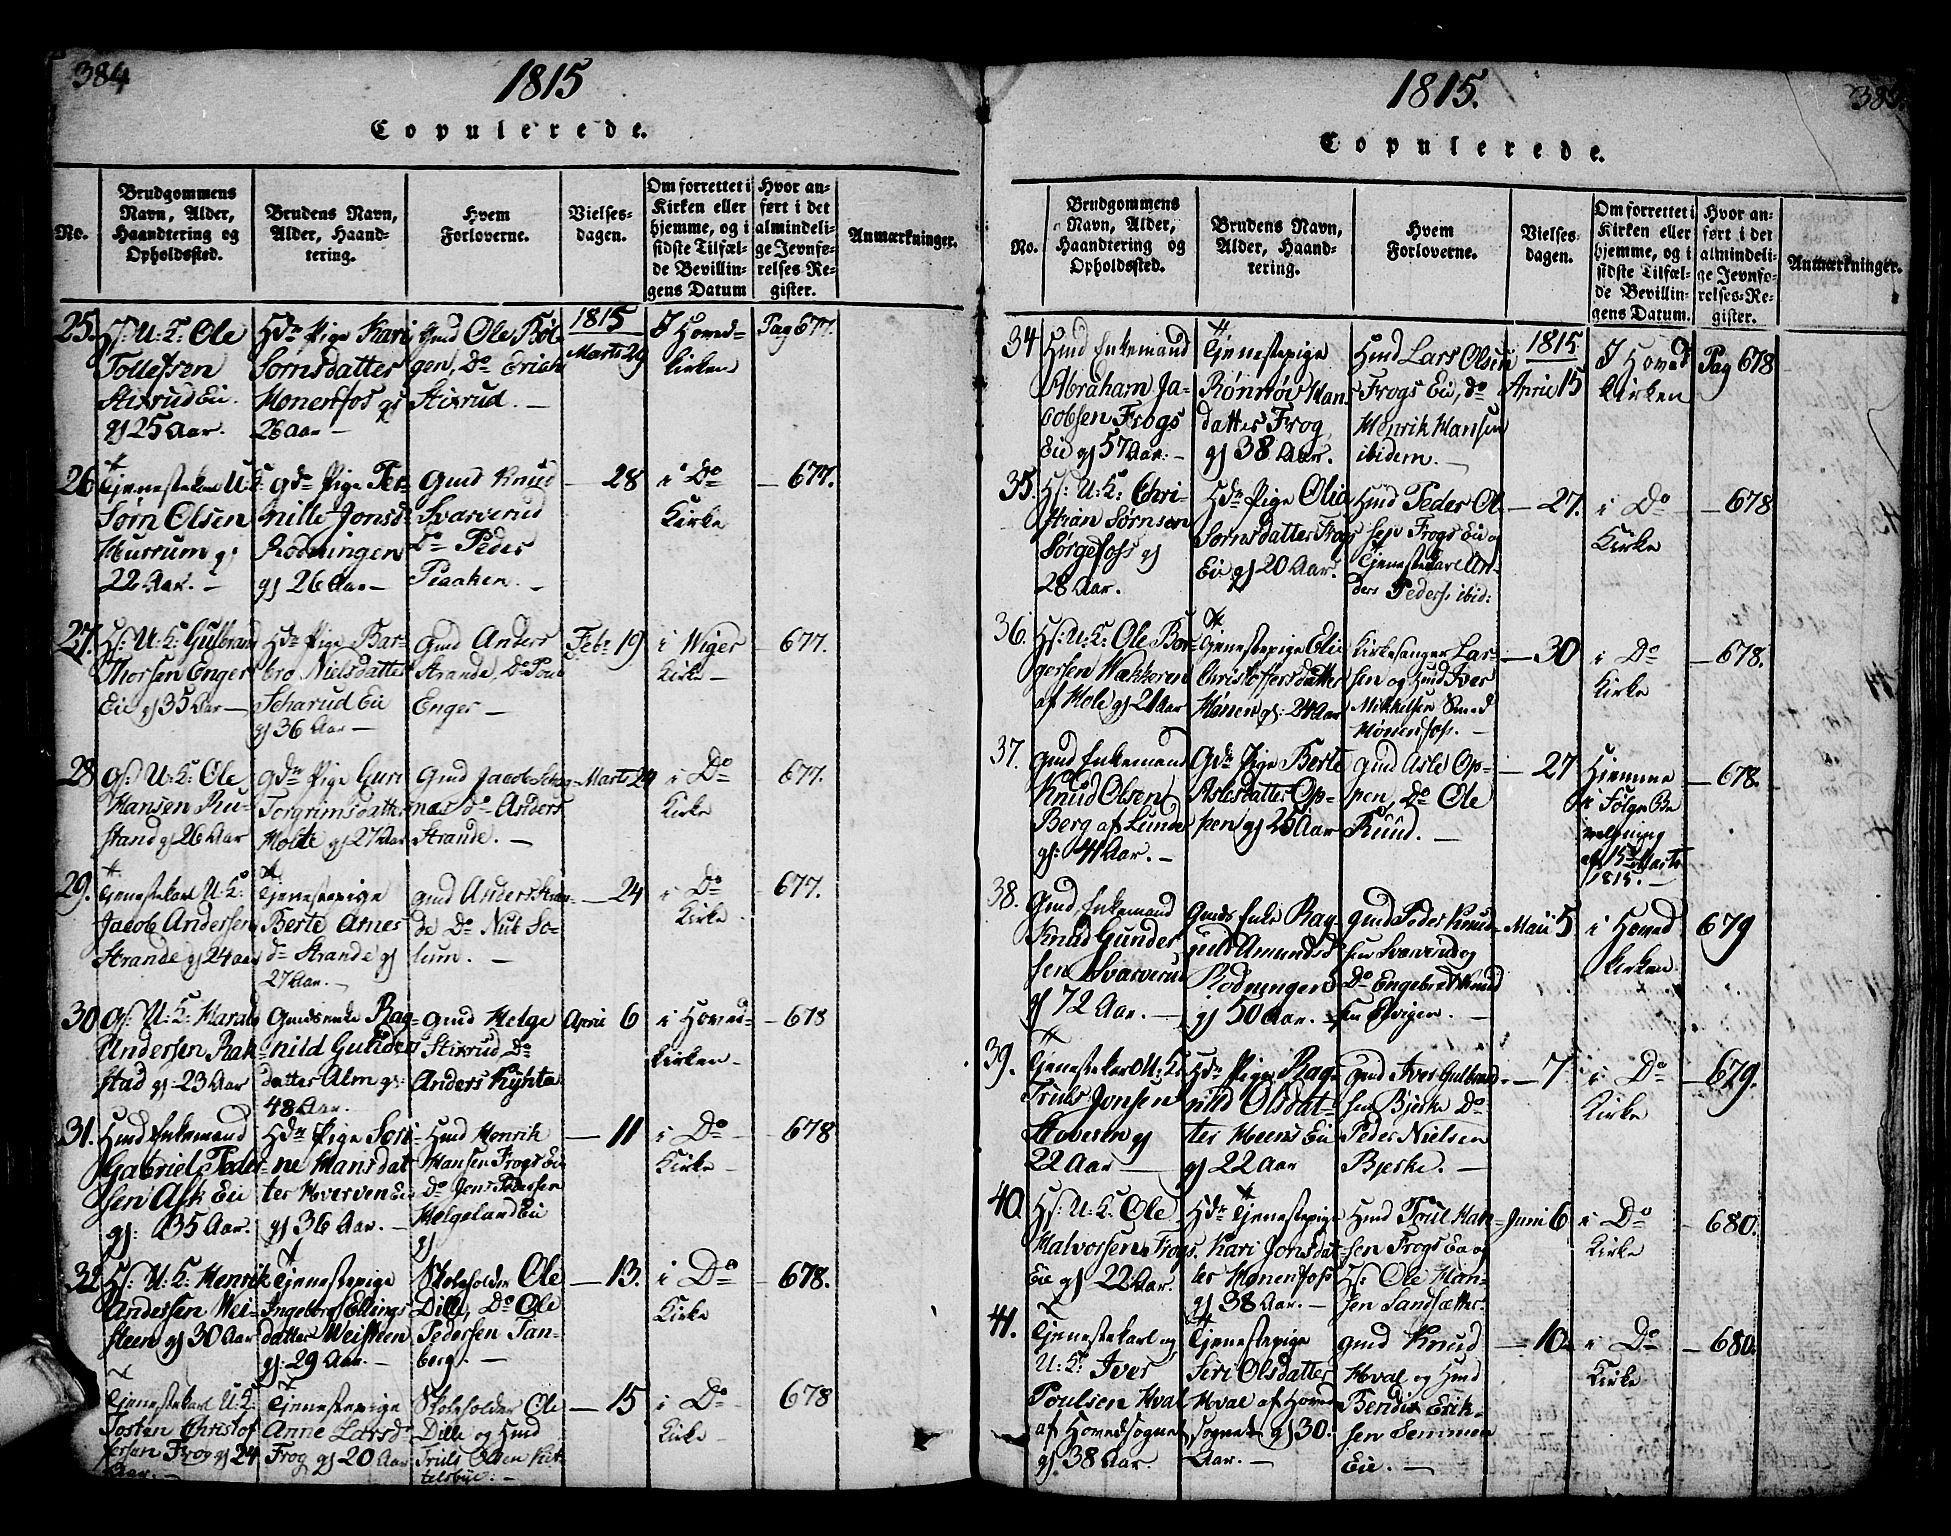 384
1815
Copulerede.
No.
Brudgommens
Navn, Alder,
Haandtering og
Opholdssted.
Brudens Navn,
Alder, Haand-
tering.
Hvem
Forloverne.
Vielses-
dagen.
Om forrettet i
Kirken eller
hjemme, og i
sidste Tilfæl-
de Bevillin-
gens Datum
Hvor an-
ført i det
almindeli-
ge Jevnfø-
relses-Re-
gister.
Anmærkninger.
25.
Hs: U: K: Ole
Tollefsen
Stixrud Eie.
gl 25 Aar.
Hdr Pige Kari
Sørnsdatter
Hønenfos gl
26 Aar —
Gmd Ole Böl-
gen, Do Erich
Stixrud. —
1815
Marts 29
I Hoved-
kirken
Pag 677.
26
Tjenestekarl U: K:
Sørn Olsen
Hurrum gl
22 Aar. —
Gdr Pige Per-
nille Jonsd
Rødningen
gl 26 Aar —
Gmd Knud
Svarverud
Do Peder
Plaaken. —
— 28
i Do
Kirke
— 677.
27.
Hs: U: K: Gulbrand
Thorsen Enger
Eie gl 35 Aar —
Hdr Pige Bar-
bro Nielsdatter
Scharud Eie
gl 36 Aar —
Gmd Anders
Strande, Do Poul
Enger —
Febr 19
i Wiger
Kirke —
— 677.
28
Gs: U: K: Ole
Hansen Ru-
stand gl 26 Aar
Gdr Pige Guri
Torgrimsdatter
Holte gl 27 Aar
Gmd Jacob
næs Do Anders
Strande. —
Marts 24
i Do
Kirke
677.
29.
Tjenestekarl U: K:
Jacob Andersen
Strande gl 24 aar
Tjenestepige
Berte Arnes
dr Strande gl
27 Aar. —
Gmd Anders Stran-
de Do Nub So-
lum. —
— 24
i Do
Kirke
— 677.
30
Gs: U: K: Harald
Andersen Rak-
stad gl 23 Aar
Gmdsenke Rag-
nild Gunders
datter Alm gl:
48 Aar.
Gmd Helge
Stixrud, Do
Anders Kihle
April 6
i Hoved-
kirken —
— 678
31.
Hmd Enkemand
Gabriel Peder-
sen Ask Eie
gl: 35 Aar.
Hdr Pige Søri-
ne Hansdat
ter Hverven Eie
gl 36 Aar. —
Hmd Henrik
Hansen Frogs Eie
Do Jens Pedersen
Helgeland Eie
gl
— 11
i Do
Kirke —
— 678
32
Hs: U: K: Henrik
Andersen Wei-
steen gl 30 Aar
Tjenestepige
Ingeborg Ellings
datter Weisteen
gl: 29 Aar. —
Skoleholder Ole
Dille, Do Ole
Pedersen Tan-
berg. —
— 13.
i Do
Kirke
— 678.
Tjenestekarl U: K:
Tosten Christof
fersen Frog gl 24
Aar. —
Tjenestepige
Anne Larsdr
Frog gl 20 Aar
Skoleholder Ole
Dille og Hmd
Truls Olsen Kit-
telsbye. —
— 15
i Do
Kirke —
678
1815.
385.
Copulerede.
No.
Brudgommens
Navn, Alder,
Haandtering og
Opholdssted.
Brudens Navn,
Alder, Haand-
tering.
Hvem
Forloverne.
Vielses-
dagen.
Om forrettet i
Kirken eller
hjemme, og i
sidste Tilfæl-
de Bevillin-
gens Datum.
Hvor an-
ført i det
almindeli-
ge Jevnfø-
relses-Re-
gister.
Anmærkninger.
34
Hmd Enkemand
Abraham Ja-
cobsen Frogs
Eie gl 57 Aar. —
Tjenestepige
Rønnøv Hans
datter Frog
gl 38 Aar.
Hmd Lars Olsen
Frogs Eie, do
Henrik Hansen
ibidem. —
1815
April 15
I Hoved
kirken
Pag 678
35.
Hs: U: K: Chri-
stian Sørnsen
Sørgefoss gl
28 Aar.
Hdr Pige Olia
Sørnsdatter Frogs
Eie gl 20 Aar.
Hmd Peder Ol-
sen Frogs Eie og
Tjenestekarl An-
ders Peders. ibid:
— 27.
i Do
Kirke
— 678
36.
Hs: U: K: Ole Bør-
gersen Wækkeren
af Hole gl 21 Aar
Tjenestepige Elie
Christoffersdatter
Hønen gl: 24 Aar
Kirkesanger Lar-
sen og Hmd Iver
Mikkelsen Smed
Hønenfoss. —
— 30
i Do
Kirke
— 678.
37.
Gmd Enkemand
Knud Olsen
Berg af Lunder
gl: 41 Aar. —
Gdr Pige Berte
Aslesdatter Op-
pen gl 25 Aar
Gmd Asle Op-
pen, Do Ole
Ruud. —
— 27
Hiemme
i Følge Be
velgning
af 15de Marts
1815. —
— 678.
38.
Gmd Enkemand
Knud Gunder
sen Svarverud
gl 72 Aar. —
Gmds Enke Rag
nild Amundsd
Rødningen
gl 50 Aar. —
Gmd Peder Knud-
sen Svarverud og
Do Engebret Knud
sen Elvigen. —
Maii 5
i Hoved
kirken
679
39.
Tjenestekarl U: K:
Truls Jonsen
Hoveren gl
22 Aar —
Hdr Pige Rag-
nild Olsdat-
ter Heens Eie
gl 22 Aar
Gmd Iver Gulbrand-
sen Bjerke Do
Peder Nielsen
Bjerke. —
— 7
i Do
Kirke
— 679.
40.
Hs: U: K: Ole
Halvorsen Frogs
Eie gl 22 Aar.
Hdr Tjenestepige
Kari Jonsdat-
ter Hønenfoss
gl 38 Aar. —
Hmd Poul Han-
sen Frogs Eie og
Hs: Ole Han-
sen Sandsætter.
Juni 6
i Do
Kirke
— 680.
41.
Tjenestekarl og
U: K: Iver
Poulsen Hval
af Hovedsognet
gl 38 Aar
Tjenestepige
Siri Olsdatter
Hval af Hoved
sognet gl 30.
Aar. —
Gmd Knud
Hval og Hmd
Bendix Erik-
sen Semmen
Eie. —
— 10.
i Do
Kirke
— 680.